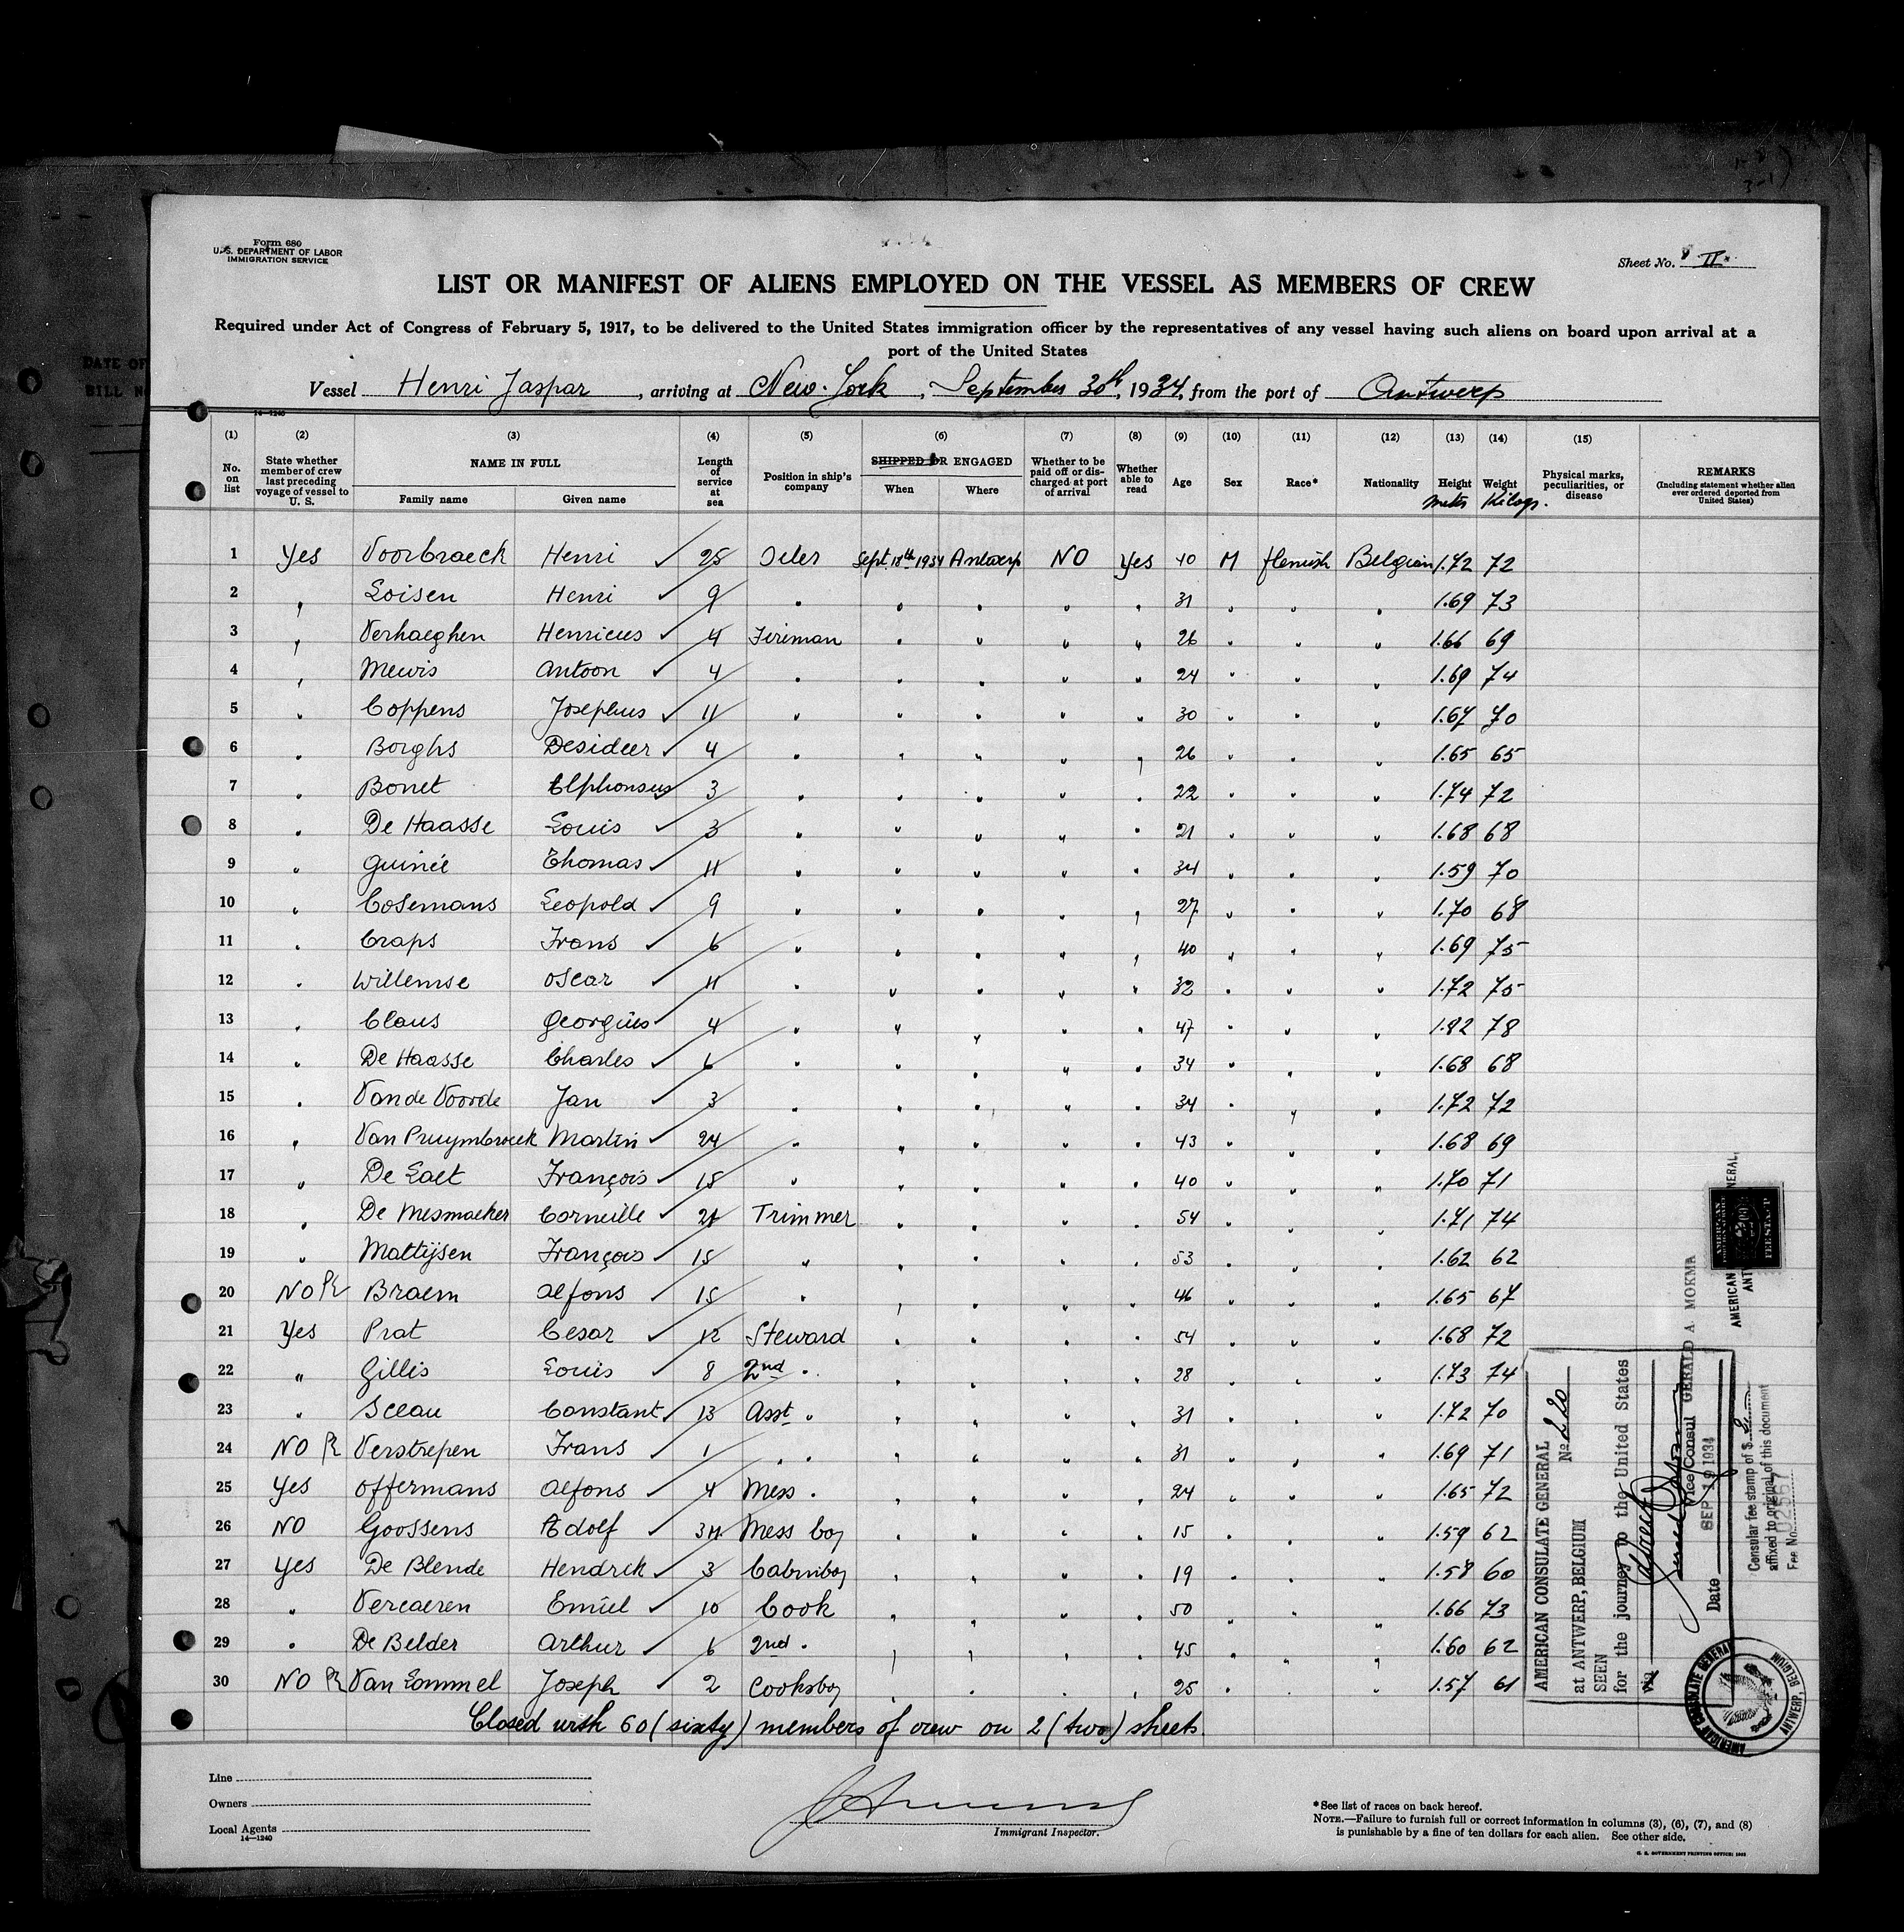 Form 680
U.S. DEPARTMENT OF LABOR
IMMIGRATION SERVICE
Sheet No. II
LIST OR MANIFEST OF ALIENS EMPLOYED ON THE VESSEL AS MEMBERS OF CREW
Required under Act of Congress of February 5, 1917, to be delivered to the United States immigration officer by the representatives of any vessel having such aliens on board upon arrival at a
port of the United States
Vessel Henri Jaspar, arriving at New-York, September 30th, 1934, from the port of Antwerp
14-1240
(1) (2) (3) (4) (5) (6) (7) (8) (9) (10) (11) (12) (13) (14) (15)
No. on list State whether member of crew last preceding voyage of vessel to U. S. NAME IN FULL Family name Given name Length of service at sea Position in ship's company SHIPPED OR ENGAGED When Where Whether to be paid off or discharged at port of arrival Whether able to read Age Sex Race* Nationality Height meters Weight Kilogr. Physical marks, peculiarities, or disease REMARKS (Including statement whether alien ever ordered deported from United States)
1 Yes Voorbraeck Henri ✓ 25 Oiler Sept. 18th 1934 Antwerp NO Yes 40 M flemish Belgian 1.72 72
2 " Loisen Henri ✓ 9 " " " " " 31 " " " 1.69 73
3 " Verhaeghen Henricus ✓ 4 Fireman " " " " 26 " " " 1.66 69
4 " Mewis Antoon ✓ 4 " " " " " 24 " " " 1.69 74
5 " Coppens Josephus ✓ 11 " " " " " 30 " " " 1.67 70
6 " Borghs Desideer ✓ 4 " " " " " 26 " " " 1.65 65
7 " Bonet Alphonsus ✓ 3 " " " " " 22 " " " 1.74 72
8 " De Haasse Louis ✓ 3 " " " " " 21 " " " 1.68 68
9 " Guinée Thomas ✓ 11 " " " " " 34 " " " 1.59 70
10 " Cosemans Leopold ✓ 9 " " " " " 27 " " " 1.70 68
11 " Craps Frans ✓ 6 " " " " " 40 " " " 1.69 75
12 " Willemse Oscar ✓ 11 " " " " " 32 " " " 1.72 75
13 " Claus Georgius ✓ 4 " " " " " 47 " " " 1.82 78
14 " De Haasse Charles ✓ 6 " " " " " 34 " " " 1.68 68
15 " Van de Voorde Jan ✓ 3 " " " " " 34 " " " 1.72 72
16 " Van Pruymbroeck Martin ✓ 24 " " " " " 43 " " " 1.68 69
17 " De Laet François ✓ 15 " " " " " 40 " " " 1.70 71
18 " De Mesmaeker Corneille ✓ 21 Trimmer " " " " 54 " " " 1.71 74
19 " Mattijsen François ✓ 15 " " " " " 53 " " " 1.62 62
20 NO Braem Alfons ✓ 15 " " " " " 46 " " " 1.65 67
21 Yes Prat Cesar ✓ 12 Steward " " " " 54 " " " 1.68 72
22 " Gillis Louis ✓ 8 2nd " " " " " 28 " " " 1.73 74
23 " Sceau Constant ✓ 13 Asst. " " " " " 31 " " " 1.72 70
24 NO Verstrepen Frans ✓ 1 " " " " " " 31 " " " 1.69 71
25 Yes Offermans Alfons ✓ 4 Mess " " " " " 24 " " " 1.65 72
26 NO Goossens Adolf ✓ Mess boy " " " " 15 " " " 1.59 62
27 Yes De Blende Hendrik ✓ 3 Cabinboy " " " " 19 " " " 1.58 60
28 " Vercaeren Emiel ✓ 10 Cook " " " " 50 " " " 1.66 73
29 " De Belder Arthur ✓ 6 2nd " " " " " 45 " " " 1.60 62
30 NO Van Lommel Joseph ✓ 2 Cooksboy " " " " 25 " " " 1.57 61
Closed with 60 (sixty) members of crew on 2 (two) sheets
AMERICAN CONSULATE GENERAL
at ANTWERP, BELGIUM No 220
SEEN
for the journey to the United States
via
Vice Consul GERALD A. MOKMA
Date SEP 19 1934
Consular fee stamp of $
affixed to original of this document
Fee No.
AMERICAN CONSULATE GENERAL
ANTWERP, BELGIUM
Line
Owners
Local Agents
14-1240
Immigrant Inspector.
*See list of races on back hereof.
NOTE.—Failure to furnish full or correct information in columns (3), (6), (7), and (8)
is punishable by a fine of ten dollars for each alien. See other side.
U. S. GOVERNMENT PRINTING OFFICE